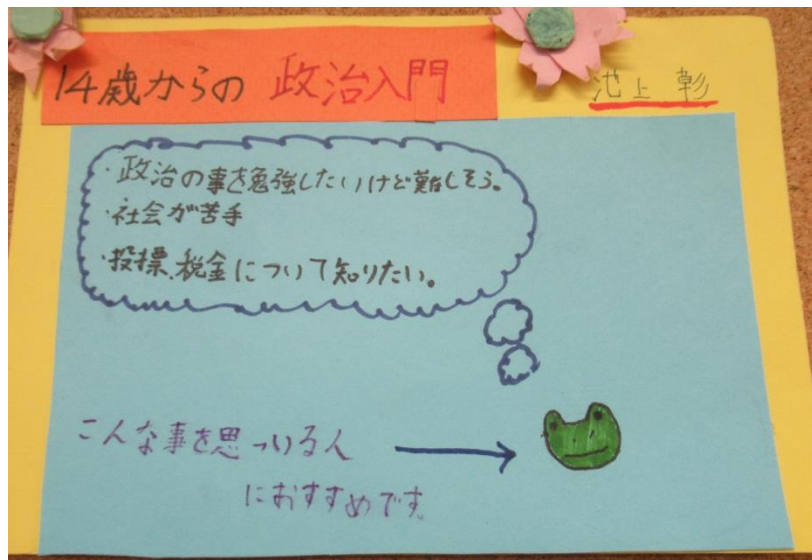 14歳からの 政治入門
池上 彰
・政治の事を勉強したいけど難しそう。
・社会が苦手
・投票、税金について知りたい。
こんな事を思っいる人
におすすめです。